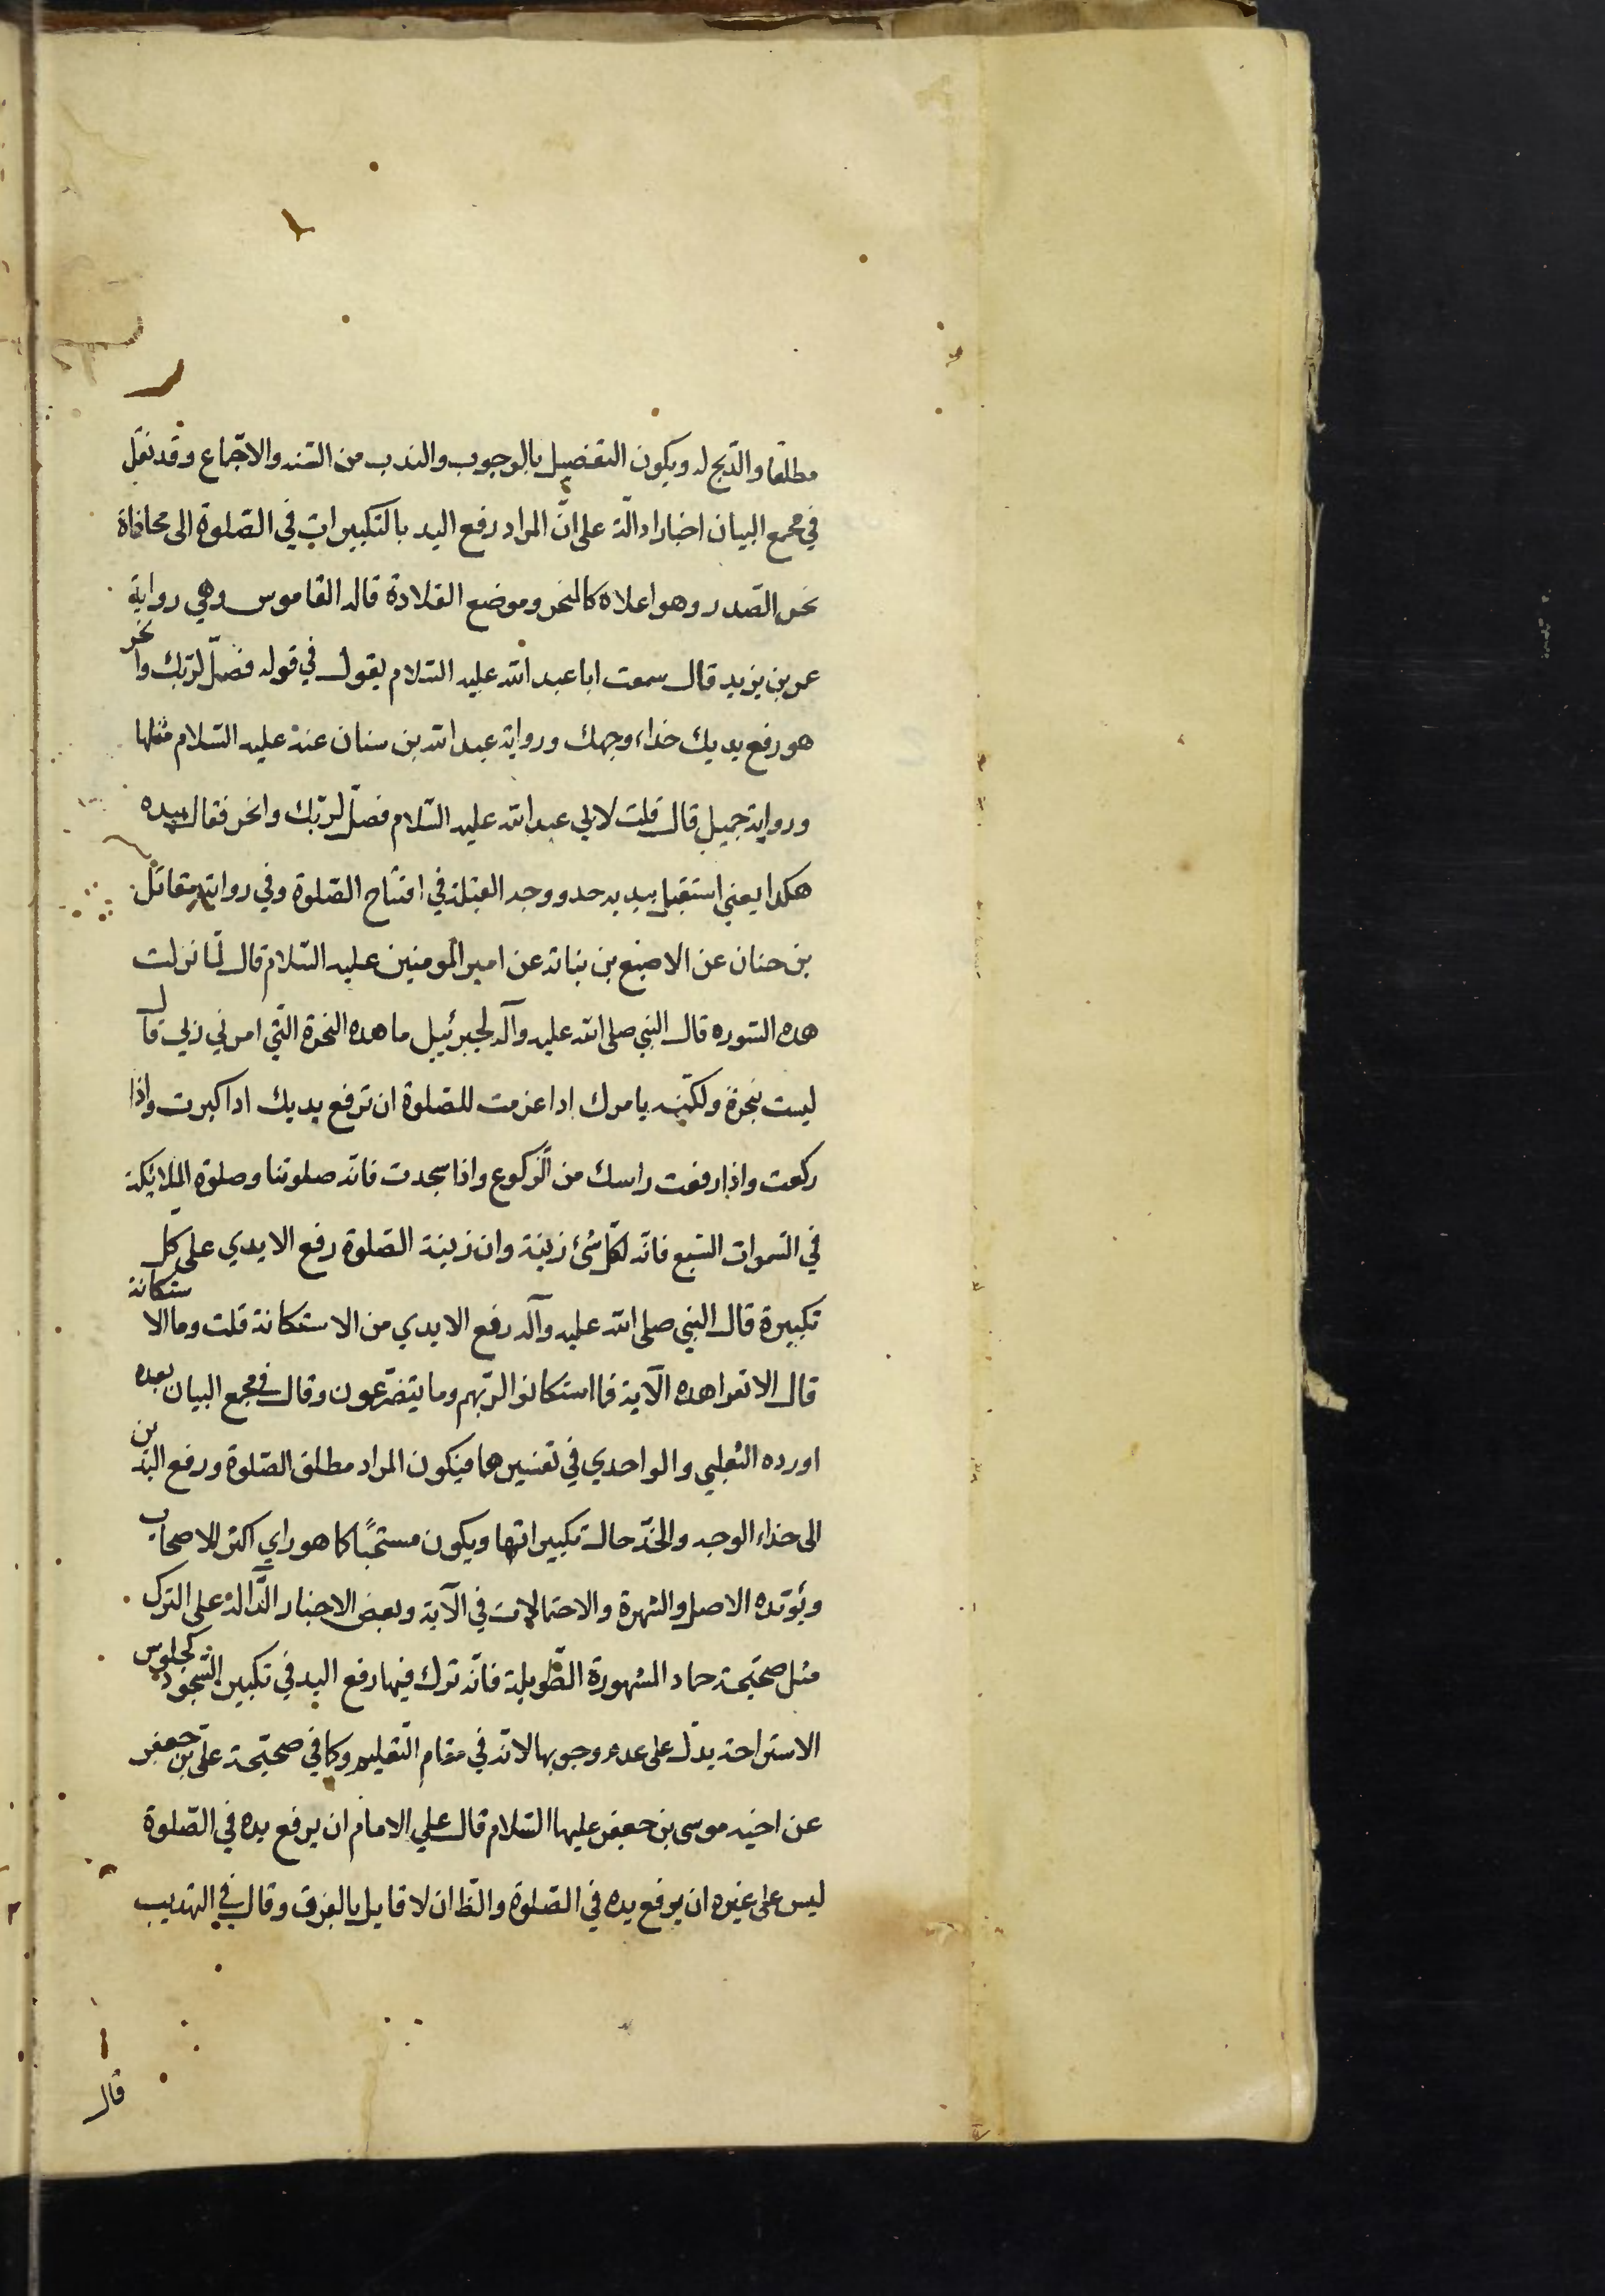 مطلقا والذبح له ويكون التفصيل بالوجوب والندب من السنه والاجماع وقد نقل
في مجمع البيان اخبارا دالة على انّ المراد رفع اليد بالتكبيرات في الصّلوة الى محاذاة
نحر الصّدر وهو اعلاه كالمنحر وموضع القلادة قاله القاموس وهي رواية
عمر بن يزيد قال سمعت ابا عبد الله عليه السّلام يقول في قوله فصلّ لربّك وانحر
هو رفع يديك حذاء وجهك ورواية عبد الله بن سنان عنه عليه السّلام مثلها
ورواية جميل قال قلت لابي عبد الله عليه السّلام فصلّ لربّك وانحر فقال بيده
هكذا يعني استقبل بيديه حذو وجه القبلة في افتتاح الصّلوة وفي رواية مقاتل
بن حنان عن الاصبغ بن نباتة عن امير المومنين عليه السّلام قال لمّا نزلت
هذه السّوره قال النبي صلى الله عليه وآله لجبرئيل ما هذه النحرة التّي امرني ربي قال
ليست بنحرة ولكنّه يامرك اذا عزمت للصّلوة ان ترفع يديك اذا كبرت واذا
ركعت واذا رفعت راسك من الرّكوع واذا سجدت فانّه صلوتنا وصلوة الملائكة
في السّموات السّبع فانّه لكلّ شئ زينة وان زينة الصّلوة رفع الايدي على كلّ
تكبيرة قال النبي صلى الله عليه وآله رفع الايدي من الاستكانة قلت وما الاستكانة
قال الا تقرا هذه الآية فما استكانوا لربّهم وما يتضرّعون وقال في مجمع البيان بعده
اورده الثعلبي والواحدي في تفسيرهما فيكون المراد مطلق الصّلوة ورفع اليدين
الى حذاء الوجه والخدّ حالة تكبيراتها ويكون مستحبًا كما هو راي اكثر الاصحاب
ويؤيّده الاصل والشهرة والاحتمالات في الآية وبعض الاخبار الدّالة على الترك
مثل صحيحة حماد المشهورة الطّويلة فانّه ترك فيها رفع اليد في تكبير السّجود كجلوس
الاستراحة يدلّ على عدم وجوبها لانّه في مقام التّعليم وكما في صحيحة علي بن جعفر
عن اخيه موسى بن جعفر عليهما السّلام قال علي الامام ان يرفع يده في الصّلوة
ليس على غيره ان يرفع يده في الصّلوة والظّ ان لا قايل بالفرق وقال في التهذيب
قال